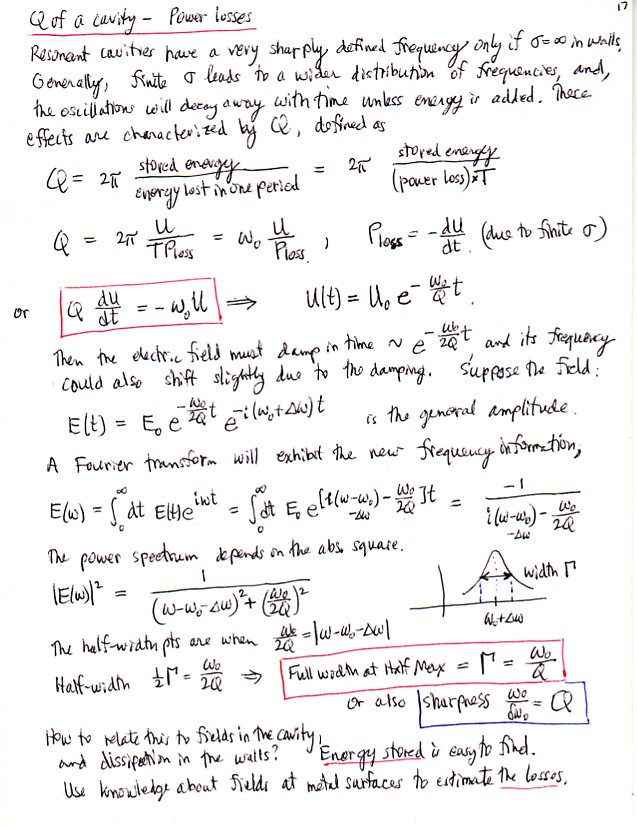 17
Q of a cavity - Power losses
Resonant cavities have a very sharply defined frequency only if σ=∞ in walls.
Generally, finite σ leads to a wider distribution of frequencies, and,
the oscillations will decay away with time unless energy is added. These
effects are characterized by Q, defined as
Q = 2π stored energy / energy lost in one period = 2π stored energy / (power loss)×T
Q = 2π U / TPloss = ω₀ U / Ploss , Ploss = - dU/dt. (due to finite σ)
or Q dU/dt = -ω₀U ⟹ U(t) = U₀ e^{-ω₀/Q t}.
Then the electric field must damp in time ~ e^{-ω₀/2Q t} and its frequency
could also shift slightly due to the damping. Suppose the field:
E(t) = E₀ e^{-ω₀/2Q t} e^{-i(ω₀+Δω)t} is the general amplitude.
A Fourier transform will exhibit the new frequency information,
E(ω) = ∫₀^∞ dt E(t)e^{iωt} = ∫₀^∞ dt E₀ e^{[i(ω-ω₀-Δω) - ω₀/2Q]t} = -1 / i(ω-ω₀-Δω) - ω₀/2Q
The power spectrum depends on the abs. square.
|E(ω)|² = 1 / (ω-ω₀-Δω)² + (ω₀/2Q)²
width Γ
ω₀+Δω
The half-width pts are when ω₀/2Q = |ω-ω₀-Δω|
Half-width ½Γ = ω₀/2Q ⟹ Full width at Half Max = Γ = ω₀/Q
or also sharpness ω₀/δω₀ = Q
How to relate this to fields in the cavity,
and dissipation in the walls? Energy stored is easy to find.
Use knowledge about fields at metal surfaces to estimate the losses.